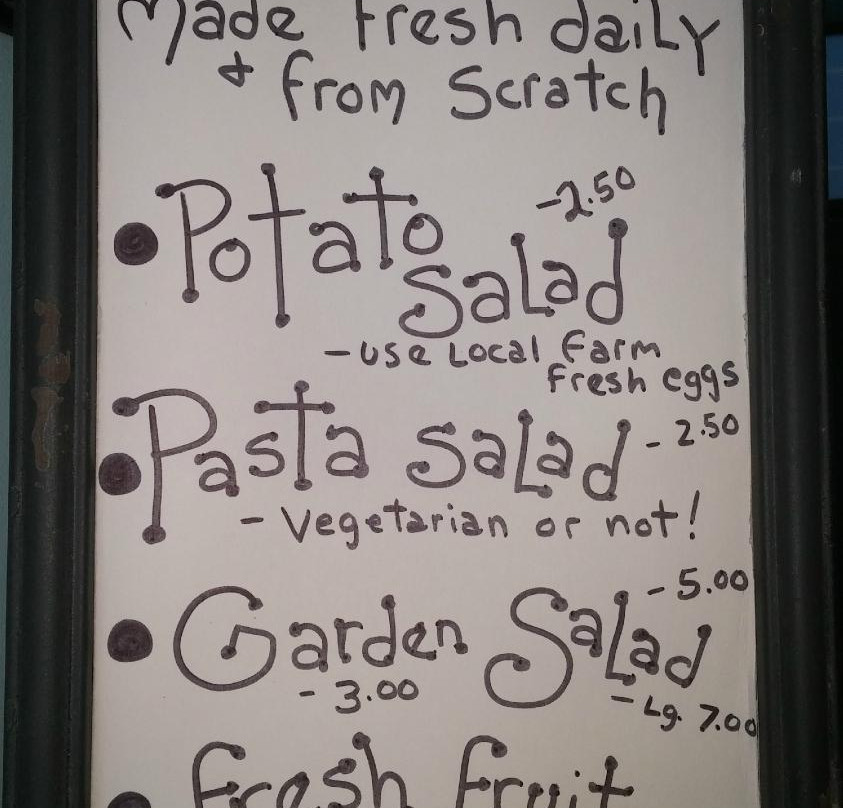 Made fresh daily
+ from Scratch
• Potato Salad -2.50
-use Local farm
fresh eggs
• Pasta salad - 2.50
- Vegetarian or not!
• Garden Salad - 5.00
- 3.00 - Lg. 7.00
• fresh fruit